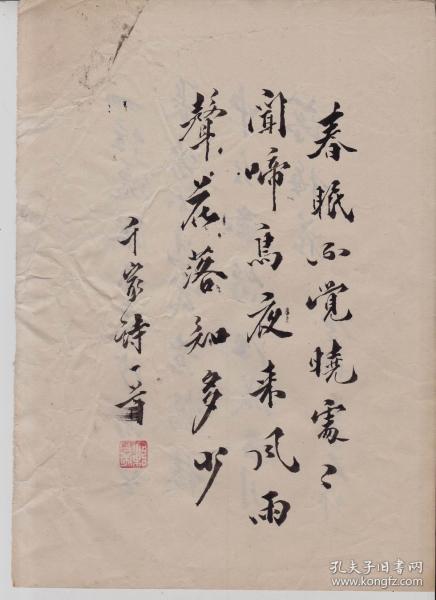 春眠不觉曉處〻
闻啼鳥夜来风雨
聲花落知多少
千家诗一首
孔夫子旧书网
www.kongfz.com